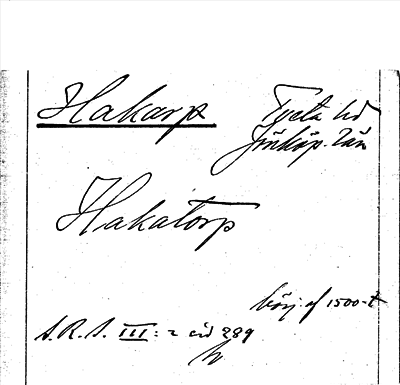 Hakarp
Tveta hd
Jönköp. län
Hakatorp
börj. af 1500-t
S.R.S. III: 2 sid 289